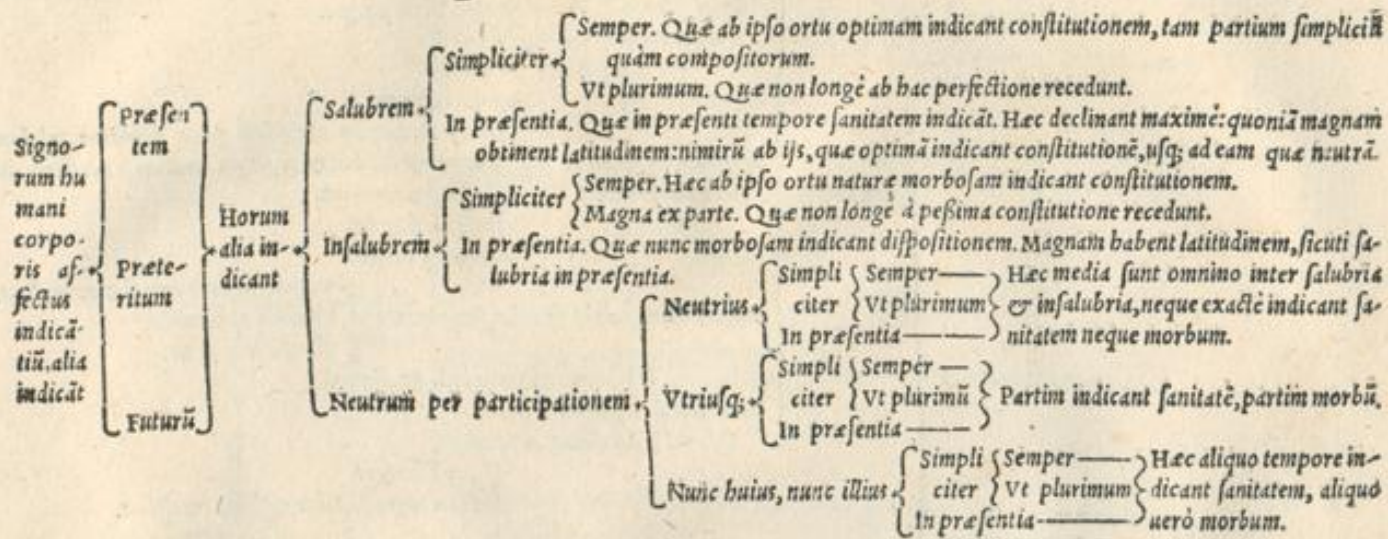 Signo-
rum hu
mani
corpo-
ris af-
fectus
indicā-
tiū, alia
indicāt
Præsen
tem
Præte-
ritum
Futurū
Horum
alia in-
dicant
Salubrem
Simpliciter
Semper. Quæ ab ipso ortu optimam indicant constitutionem, tam partium simpliciū
quàm compositorum.
Vt plurimum. Quæ non longè ab hac perfectione recedunt.
In præsentia. Quæ in præsenti tempore sanitatem indicāt. Hæc declinant maximè: quoniā magnam
obtinent latitudinem: nimirū ab ijs, quæ optimā indicant constitutionē, usq; ad eam quæ neutrā.
Insalubrem
Simpliciter
Semper. Hæc ab ipso ortu naturæ morbosam indicant constitutionem.
Magna ex parte. Quæ non longè à pessima constitutione recedunt.
In præsentia. Quæ nunc morbosam indicant dispositionem. Magnam habent latitudinem, sicuti sa-
lubria in præsentia.
Neutrum per participationem
Neutrius
Simpli
citer
Semper
Vt plurimum
In præsentia
Hæc media sunt omnino inter salubria
& insalubria, neque exactè indicant sa-
nitatem neque morbum.
Vtriusq;
Simpli
citer
Semper
Vt plurimū
In præsentia
Partim indicant sanitatē, partim morbū.
Nunc huius, nunc illius
Simpli
citer
Semper
Vt plurimum
In præsentia
Hæc aliquo tempore in-
dicant sanitatem, aliquo
uerò morbum.